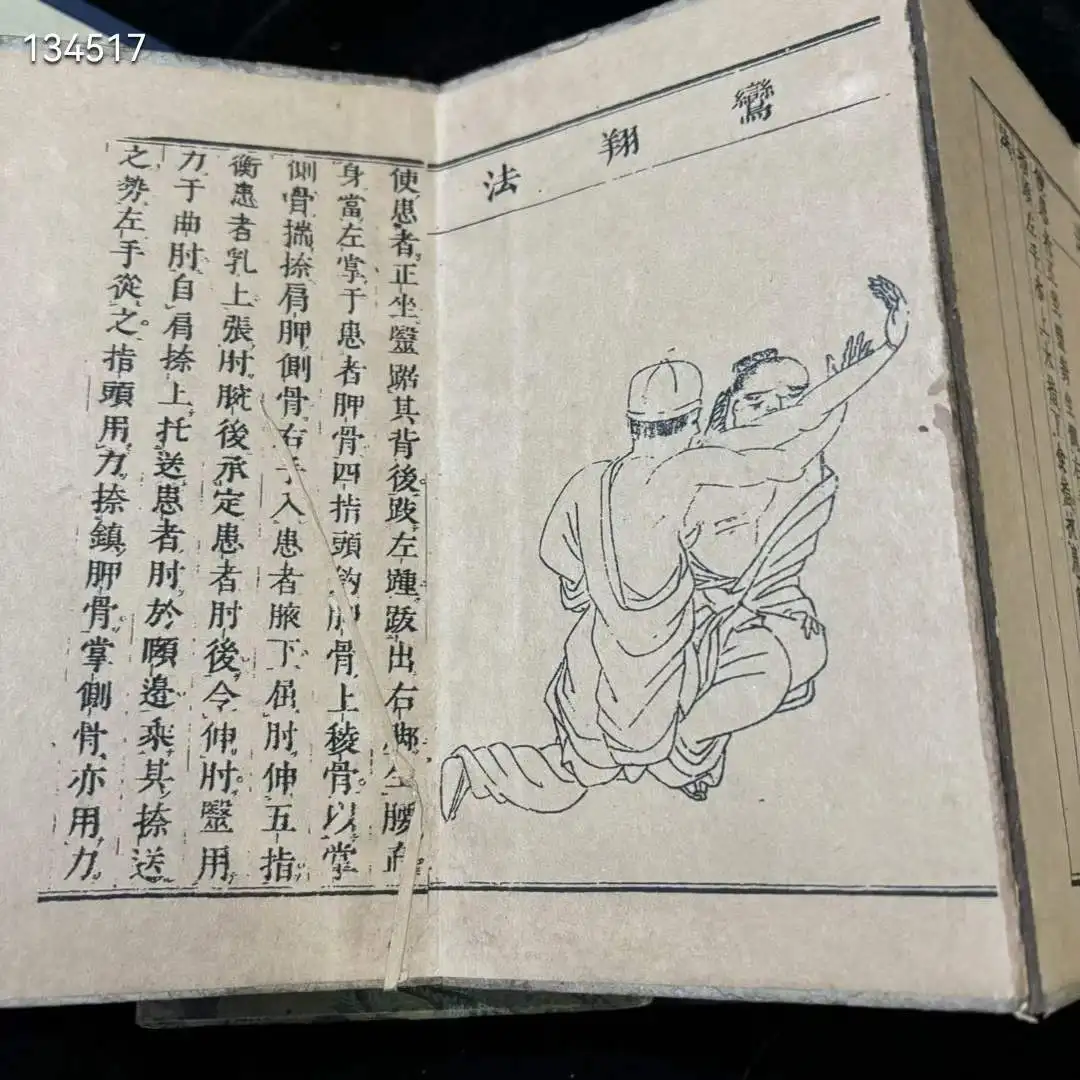 134517
鸞翔法
使患者正坐毉踞其背後跂左踵跋出右脚坐腰
身當左掌于患者胛骨四指頭鈎胛骨上稜骨以掌
側骨揣捺肩胛側骨右手入患者腋下屈肘伸五指
衡患者乳上張肘腕後承定患者肘後令伸肘毉用
力于曲肘自肩捺上托送患者肘於頤邊乘其捺送
之勢左手從之指頭用力捺鎮胛骨掌側骨亦用力